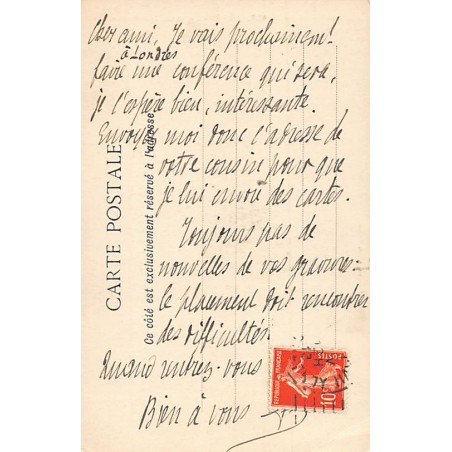 Cher ami, Je vais prochainemt
à Londres
faire une conférence qui sera,
je l'espère bien, intéressante.
Envoyez moi donc l'adresse de
votre cousin pour que
je lui envoie des cartes.
Toujours pas de
nouvelles de vos gravures =
le placement doit rencontrer
des difficultés.
Quand rentrez-vous
Bien à vous
CARTE POSTALE
Ce côté est exclusivement réservé à l'adresse
POSTES
REPUBLIQUE FRANCAISE
10